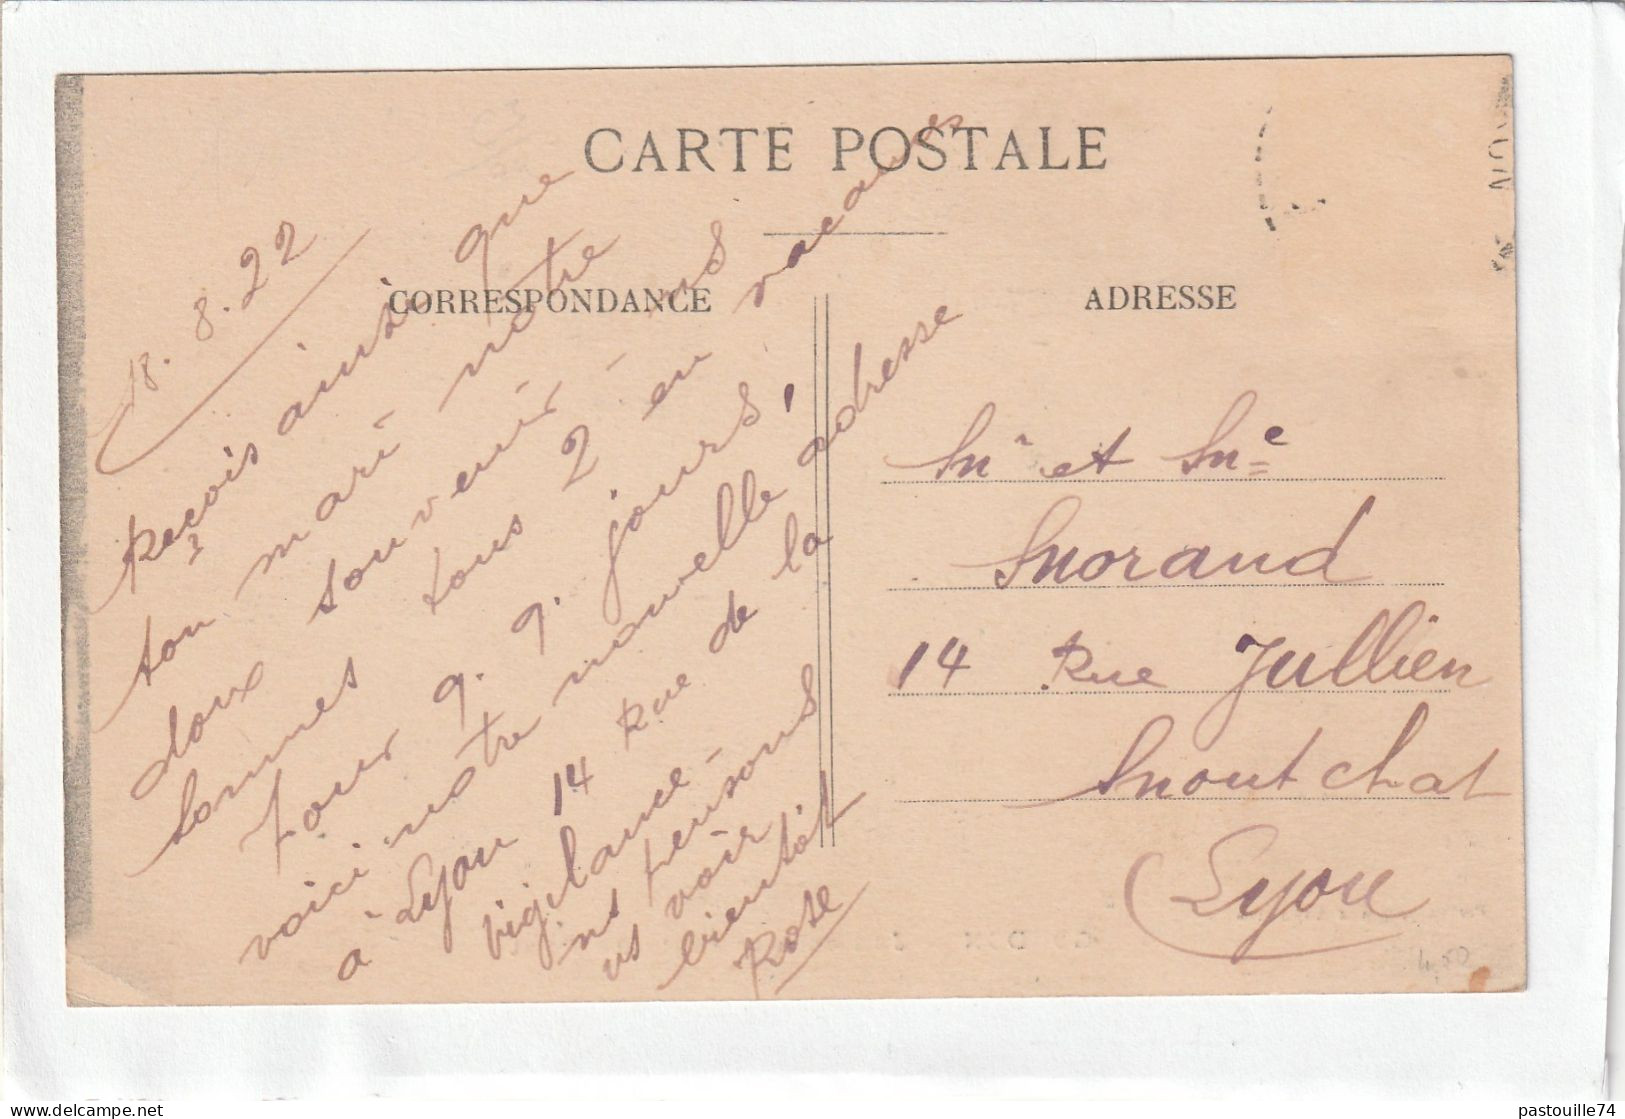 CARTE POSTALE
CORRESPONDANCE
ADRESSE
18.8.22
Reçois ainsi que
ton mari notre
doux souvenir - ns
sommes tous 2 en vacances
pour q. q. jours,
voici notre nouvelle adresse
à Lyon 14 Rue de la
vigilance -
ns pensons
vs voir
bientôt
Rose
Mr et Mme
Morand
14 Rue Jullien
Montchat
Lyon
4,50
delcampe.net
pastouille74